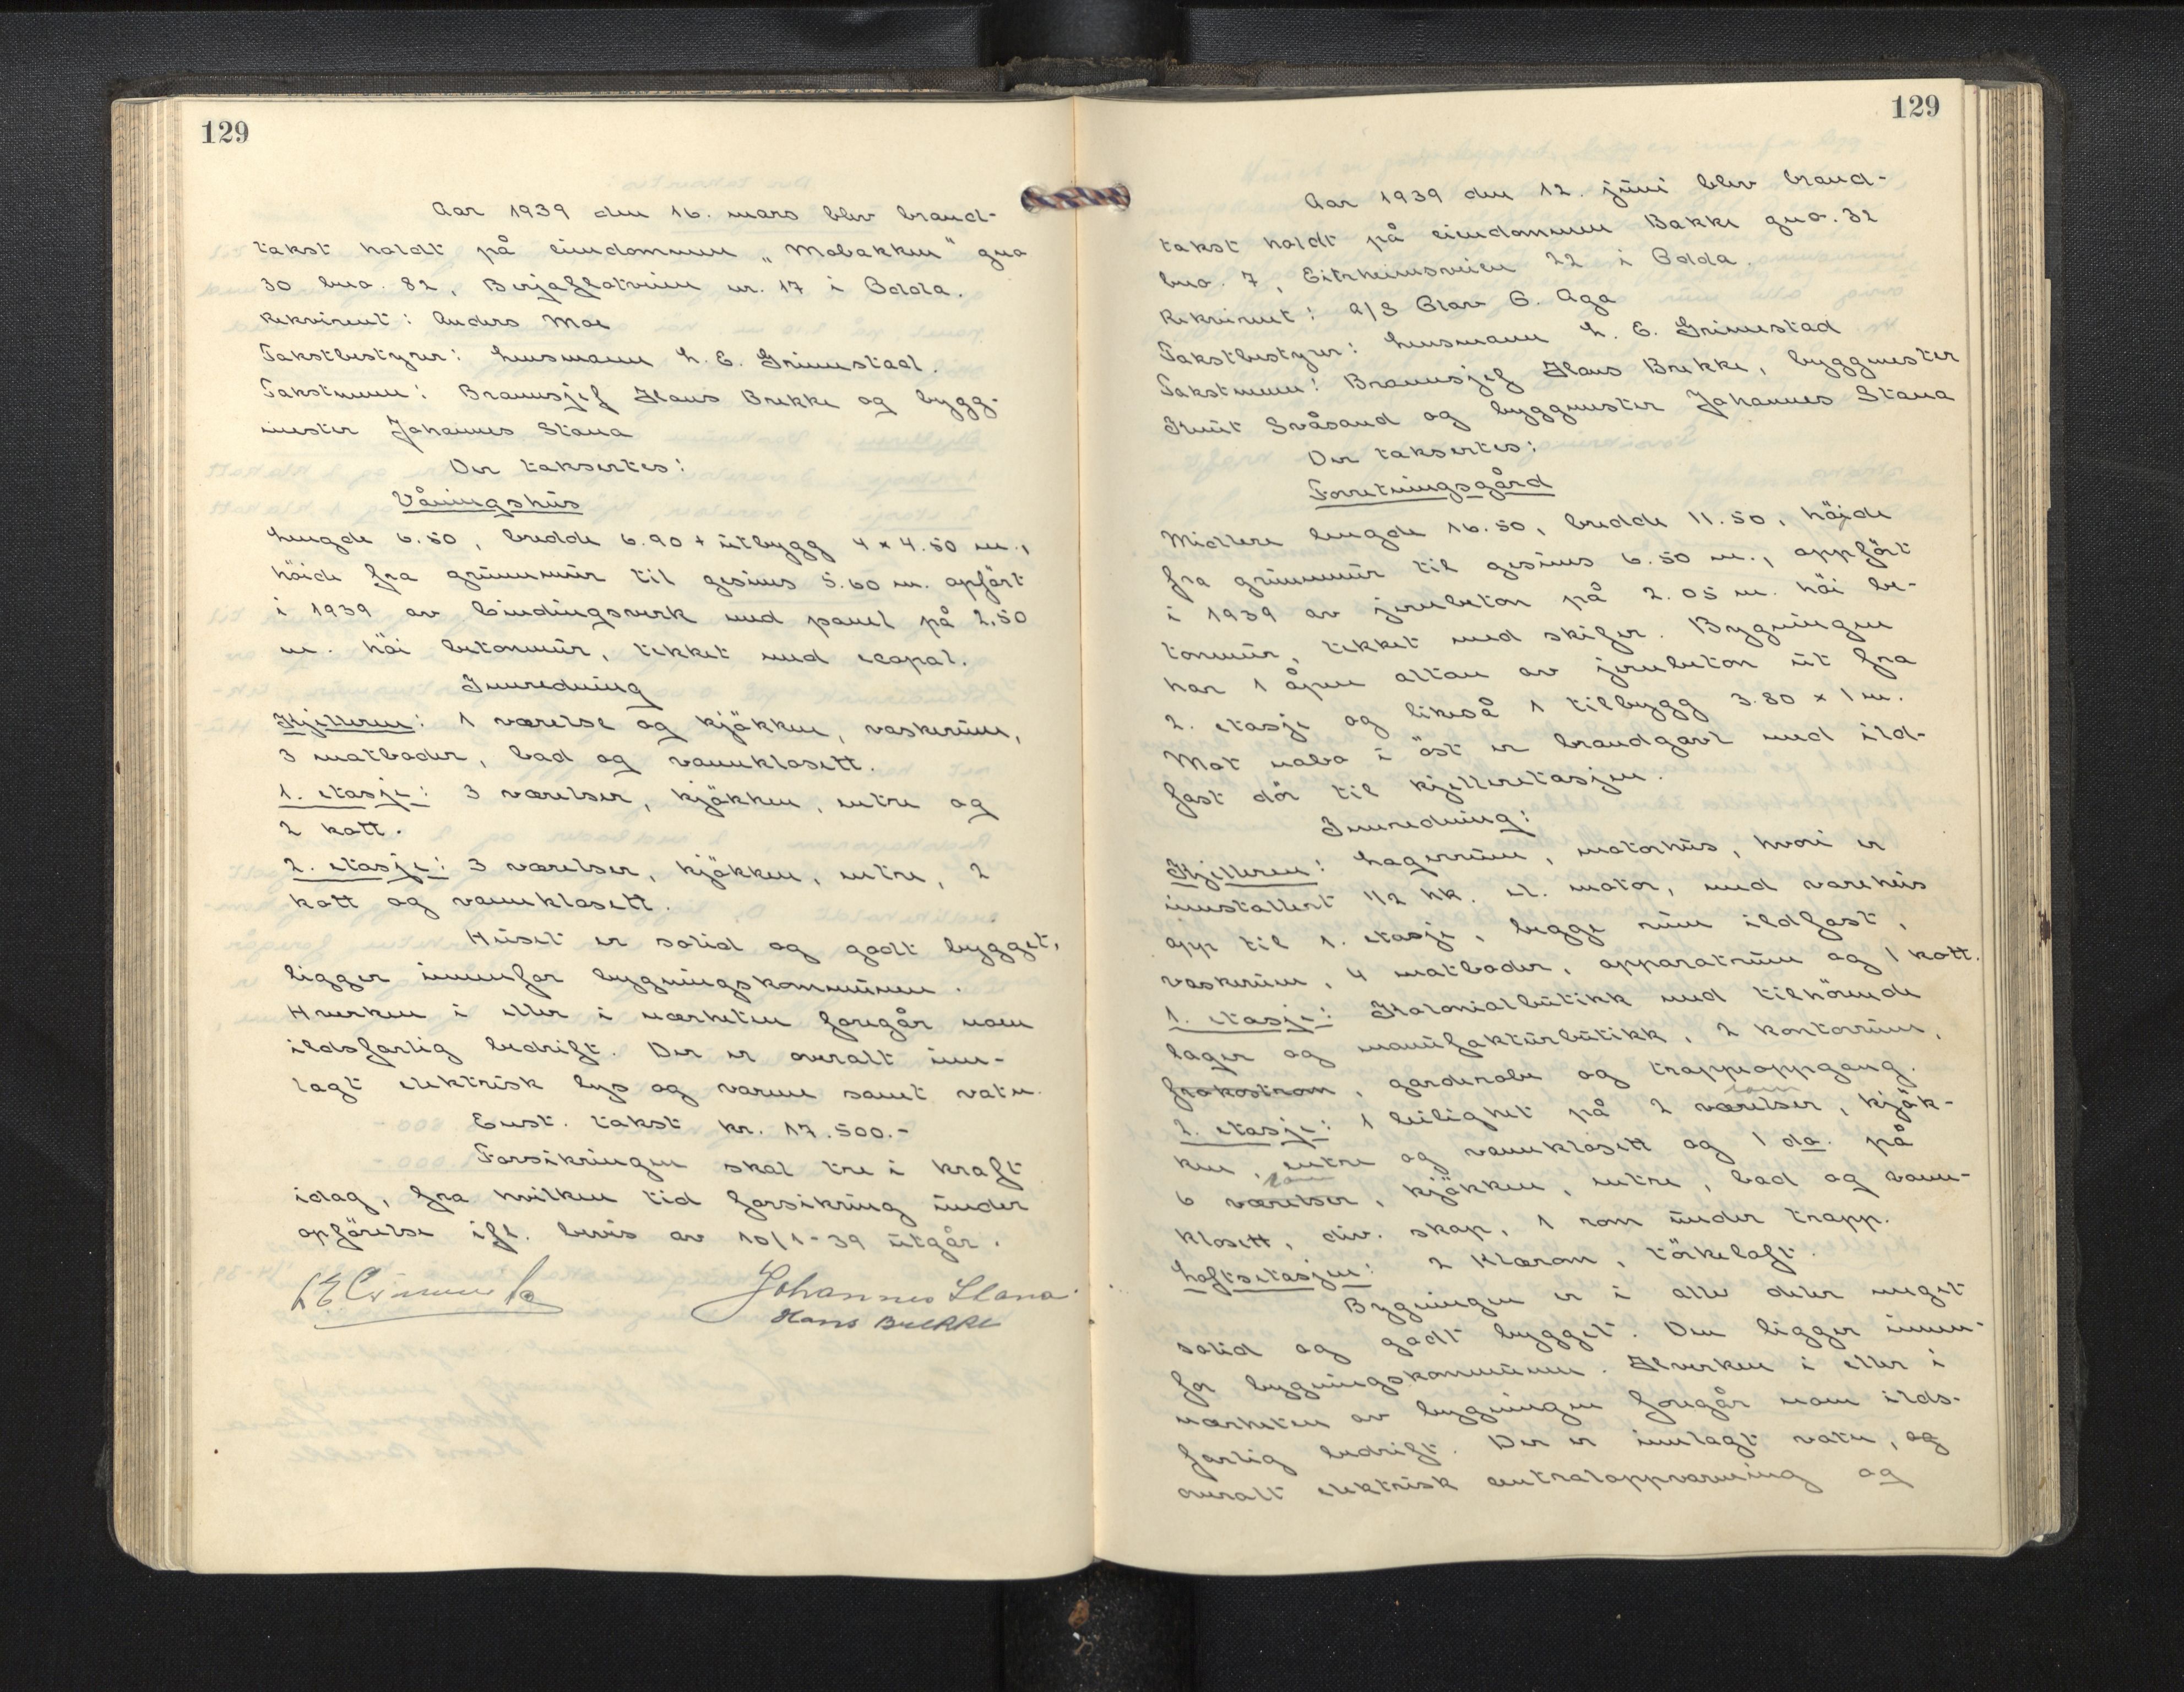 129
Aar 1939 den 16. mars blev brand-
takst holdt på eiendommen „Mobakken" gno
30 bno. 82, Berjaflotveien nr. 17 i Odda.
Rekvirent: Anders Moe
Takstbestyrer: Lensmann L. E. Grimestad.
Takstmenn: Brannsjef Hans Brekke og bygg-
mester Johannes Stana
Der taksertes:
Våningshus
Lengde 6.50, bredde 6.90 + utbygg 4 x 4.50 m.,
höide fra grunnmur til gesims 5.60 m. opfört
i 1939 av bindingsverk med panel på 2.50
m. höi betonmur, tekket med icopal.
Innredning
Kjelleren: 1 værelse og kjökken, vaskerum,
3 matboder, bad og vannklosett.
1. etasje: 3 værelser, kjökken, entre og
2 kott.
2. etasje: 3 værelser, kjökken, entre, 2
kott og vannklosett.
Huset er solid og godt bygget,
ligger innenfor bygningskommunen.
Hverken i eller i nærheten foregår noen
ildsfarlig bedrift. Der er overalt inn-
lagt elektrisk lys og varme samt vatn.
Enst. takst kr. 17.500.-
Forsikringen skal tre i kraft
idag, fra hvilken tid forsikring under
opförelse ifl. bevis av 10/1-39 utgår.
Johannes Stana
Hans Brekke
129
Aar 1939 den 12. juni blev brand-
takst holdt på eiendommen Bakke gno. 32
bno. 7, Eitrheimsveien 22 i Odda.
Rekvirent: A/S Olav G. Aga
Takstbestyrer: Lensmann L. E. Grimestad
Takstmenn: Brannsjef Hans Brekke, byggmester
Knut Svåsand og byggmester Johannes Stana
Der taksertes:
Forretningsgård
Midlere lengde 16.50, bredde 11.50, höjde
fra grunnmur til gesims 6.50 m., oppfört
i 1939 av jernbeton på 2.05 m. höi be-
tonmur, tekket med skifer. Bygningen
har 1 åpen altan av jernbeton ut fra
2. etasje og likeså 1 tilbygg 3.80 x 1 m.
Mot nabo i öst er brandgavl med ild-
fast dör til kjelleretasjen.
Innredning:
Kjelleren: Lagerrum, motorhus, hvori er
innstallert 1/2 hk. el. motor, med varehus
opp til 1. etasje, begge rum ildfast,
vaskerum, 4 matboder, apparatrum og 1 kott.
1. etasje: Kolonialbutikk med tilhörende
lager og manufakturbutikk, 2 kontorrum,
frokostrom, garderobe og trappeoppgang.
rom
2. etasje: 1 leilighet på 2 værelser, kjök-
ken, entre og vannklosett og 1 do. på
rom
6 værelser, kjökken, entre, bad og vann-
klosett, div. skap, 1 rom under trapp.
Loftsetasjen: 2 klærom, törkeloft.
Bygningen er i alle deler meget
solid og godt bygget. Den ligger innen-
for bygningskommunen. Hverken i eller i
nærheten av bygningen foregår noen ilds-
farlig bedrift. Der er innlagt vatn, og
overalt elektrisk sentraloppvarming og